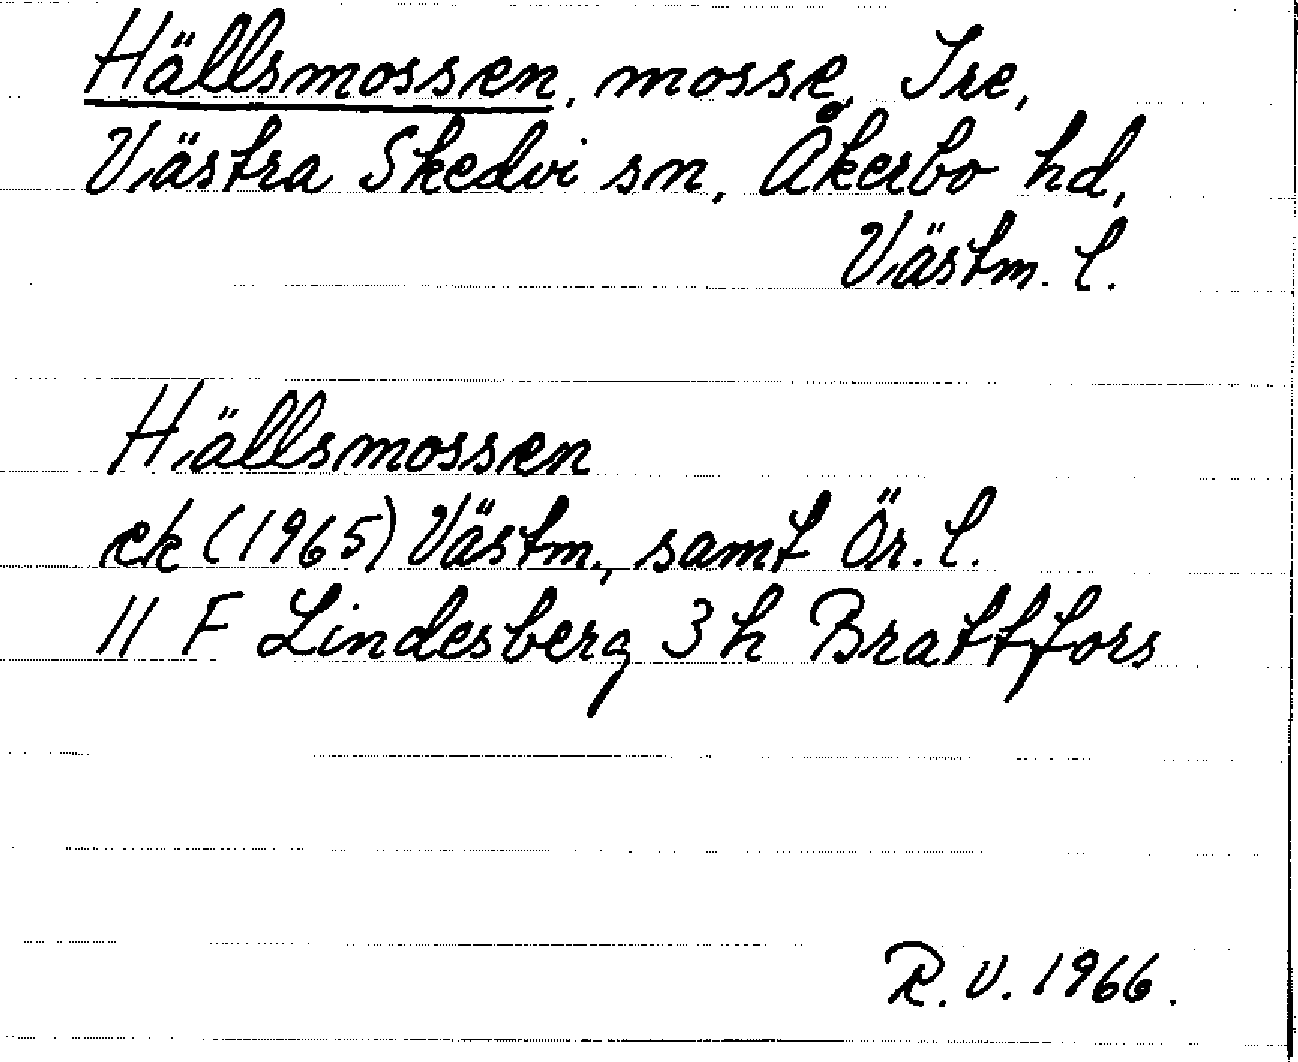 Hällsmossen, mosse, Tre,
Västra Skedvi sn, Åkerbo hd,
Västm. l.
Hällsmossen
ek (1965) Västm., samt Ör. l.
11 F Lindesberg 3 h Brattfors
R.V. 1966.